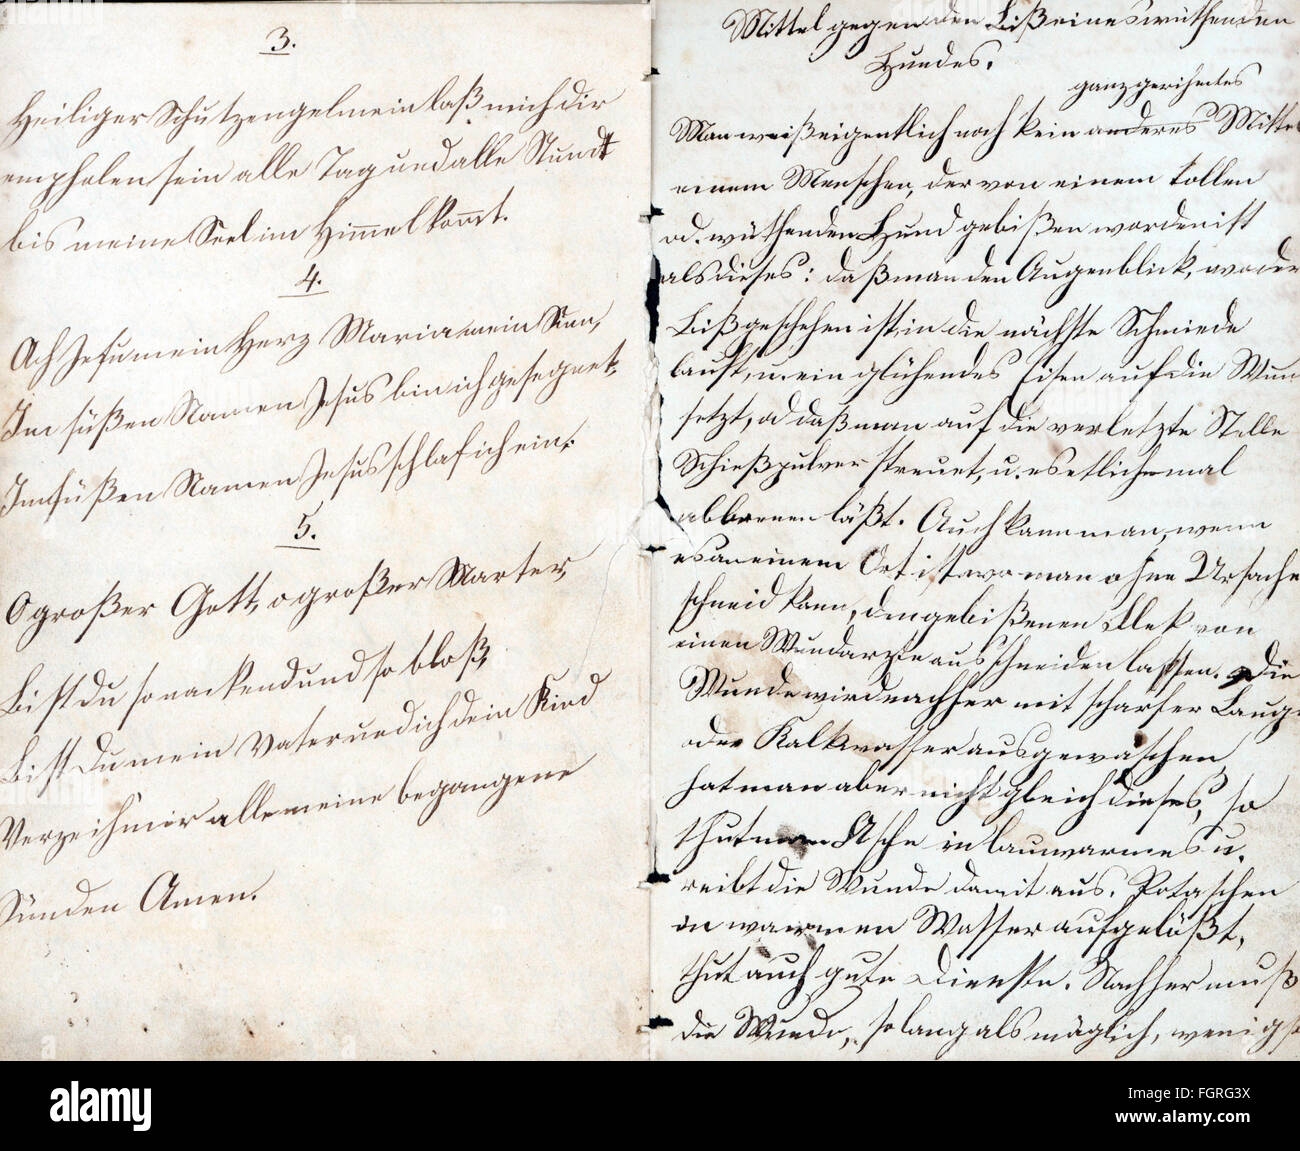 3.
Heiliger Schutzengel mein laß mich dir
empholen sein alle Tag und alle Stund
bis meine Seel im Himmel kommt.
4.
Ach Jesu mein Herz Maria mein Sinn,
Im süßen Namen Jesus bin ich gesegnet,
Im süßen Namen Jesus schlaf ich ein.
5.
O großer Gott, o großer Marter,
Bist Du so nackend und so bloß,
Bist Du mein Vater und ich dein Kind
Verzeih mir alle meine begangene
Sünden Amen.
Mittel gegen den Biß eines wüthenden
Hundes.
ganz gerechtes
Man weiß eigentlich noch kein anderes Mittel
einem Menschen, der von einem tollen
od. wüthenden Hund gebißen worden ist
als dieses: daß man den Augenblick, wo der
Biß geschehen ist, in die nächste Schmiede
lauft, u. ein glühendes Eisen auf die Wun
setzt, od daß man auf die verletzte Stelle
Schießpulver streuet, u. es etlichemal
abbrennen läßt. Auch kann man, wenn
es an einem Ort ist wo man ohne Ursache
schneid kann, den gebißenen Flek von
einen Wundarzte ausschneiden lassen. Die
Wunde wird nachher mit scharfer Lauge
oder Kalkwasser ausgewaschen
hat man aber nicht gleich dieses, so
thut man Asche in lauwarmes u.
reibt die Wunde damit aus. Potaschen
in warmen Wasser aufgelößt,
thut auch gute Dienste. Nachher muß
die Wunde, so lang als möglich, wenigst
alamy
FGRG3X
www.alamy.com